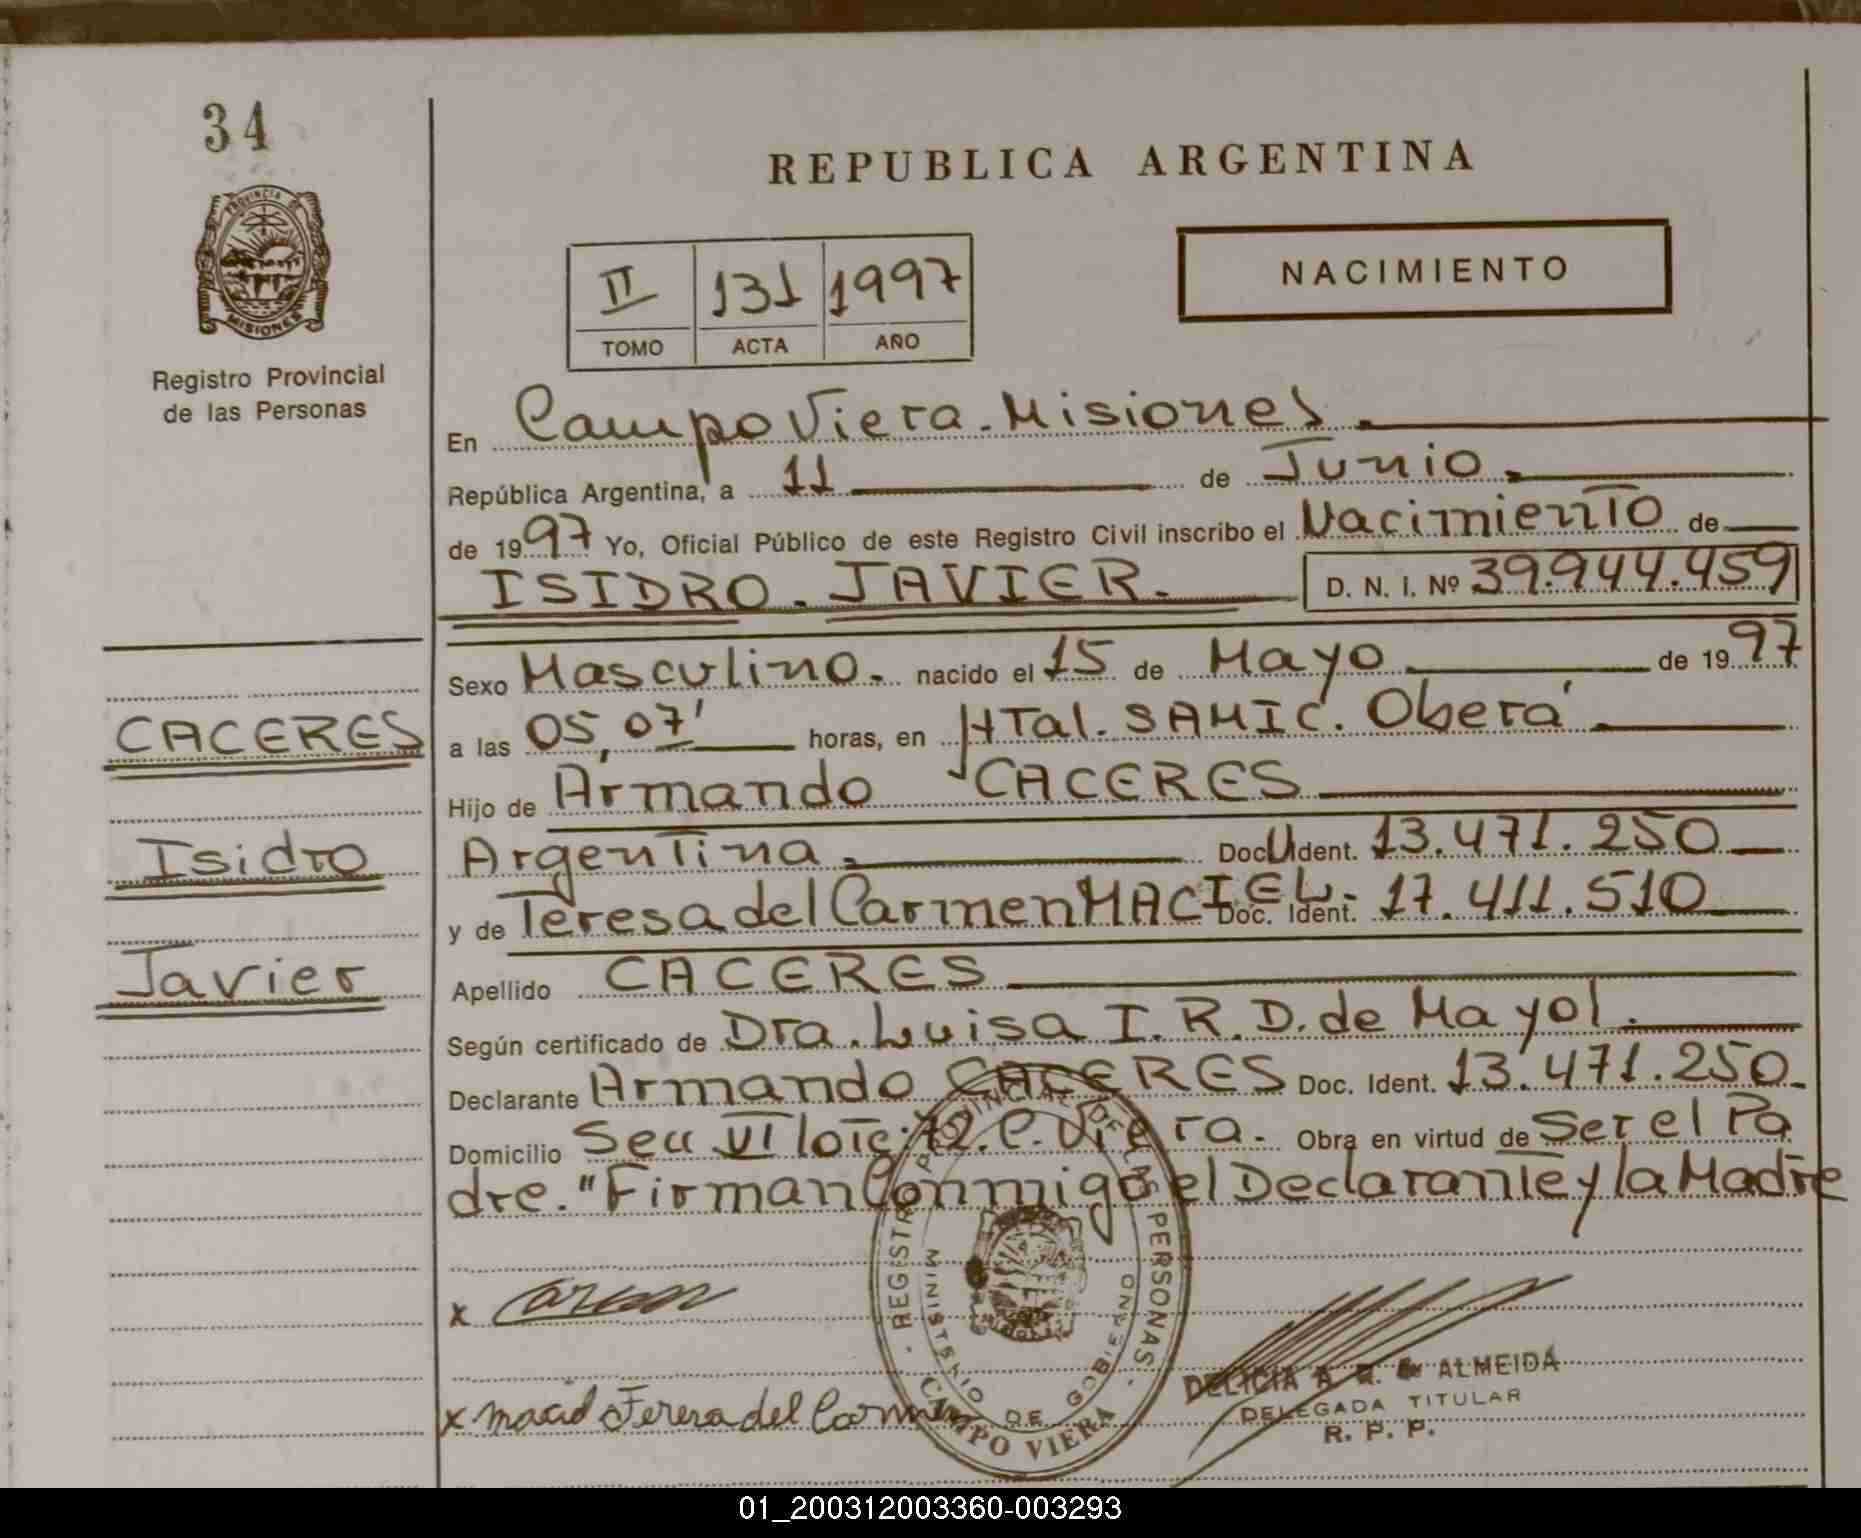 34
PROVINCIA DE
MISIONES
Registro Provincial
de las Personas
REPUBLICA ARGENTINA
II 131 1997
TOMO ACTA AÑO
NACIMIENTO
En Campo Viera. Misiones.
República Argentina, a 11 de Junio.
de 1997 Yo, Oficial Público de este Registro Civil inscribo el Nacimiento de
ISIDRO. JAVIER. D. N. I. Nº 39.944.459
Sexo Masculino. nacido el 15 de Mayo de 1997
a las 05,07' horas, en HTal. SAMIC. Oberá
Hijo de Armando CACERES
Argentina. Doc U Ident. 13.471.250
y de Teresa del Carmen MACIEL. Doc. Ident. 17.411.510
Apellido CACERES
Según certificado de Dra. Luisa I. R. D. de Mayol.
Declarante Armando CACERES Doc. Ident. 13.471.250
Domicilio Secc VI lote: 72. C. Viera. Obra en virtud de Ser el Pa
dre. "Firman Conmigo el Declarante y la Madre
CACERES
Isidro
Javier
x
x Maciel Teresa del Carmen
REGISTRO PROVINCIAL DE LAS PERSONAS
MINISTERIO DE GOBIERNO
CAMPO VIERA
DELICIA A. ALMEIDA
DELEGADA TITULAR
R. P. P.
01_200312003360-003293